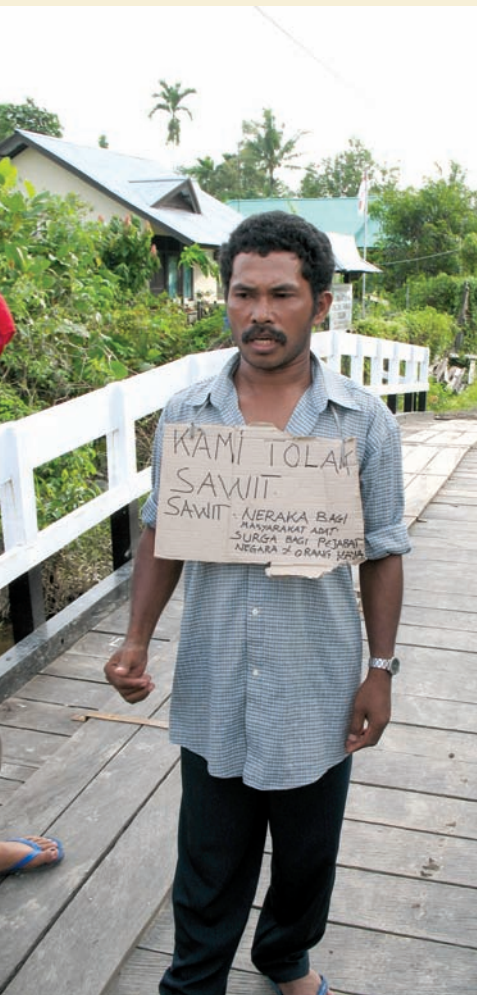 KAMI TOLAK
SAWIT.
SAWIT. NERAKA BAGI
MASYARAKAT ADAT.
SURGA BAGI PEJABAT
NEGARA & ORANG KAYA